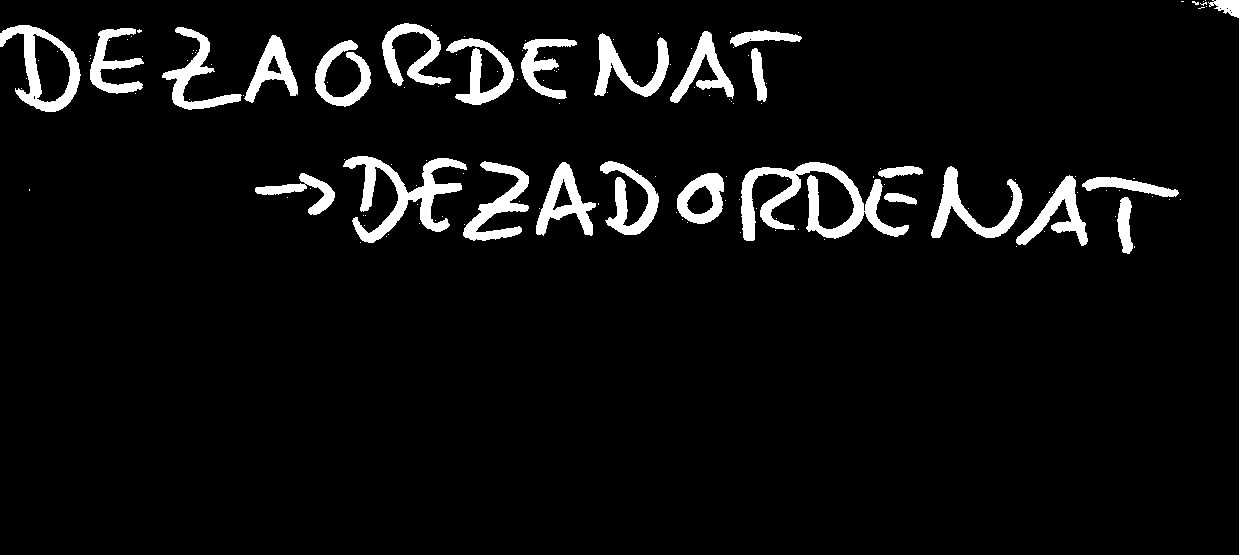 DEZAORDENAT
→DEZADORDENAT